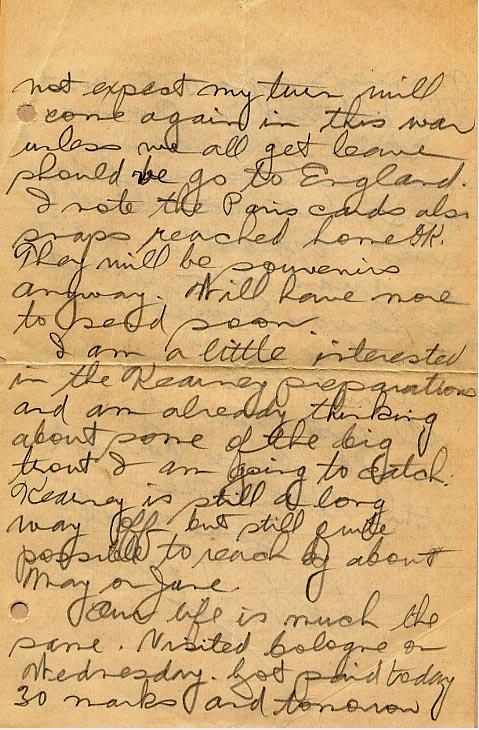 not expect my turn will
come again in this war
unless we all get leave
should we go to England.
I note the Paris cards also
snaps reached home OK.
They will be souvenirs
anyway. Will have more
to send soon.
I am a little interested
in the Kearney preparations
and am already thinking
about some of the big
trout I am going to catch.
Kearney is still a long
way off but still quite
possible to reach by about
May or June.
Our life is much the
same. Visited Cologne on
Wednesday. Got paid today
30 marks and tomorrow